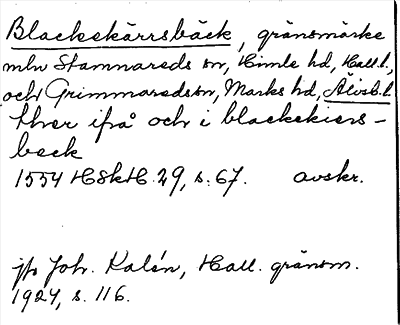 Blackekärrsbäck, gränsmärke
mln Stamnareds sn, Himle hd, Hall.l.,
och Grimmaredssn, Marks hd, Älvsb.l.
thær ifrå och i blackekiers-
beck
1554 HSkH. 29, s. 67. avskr.
jfr Joh. Kalén, Hall. gränsm.
1924, s. 116.